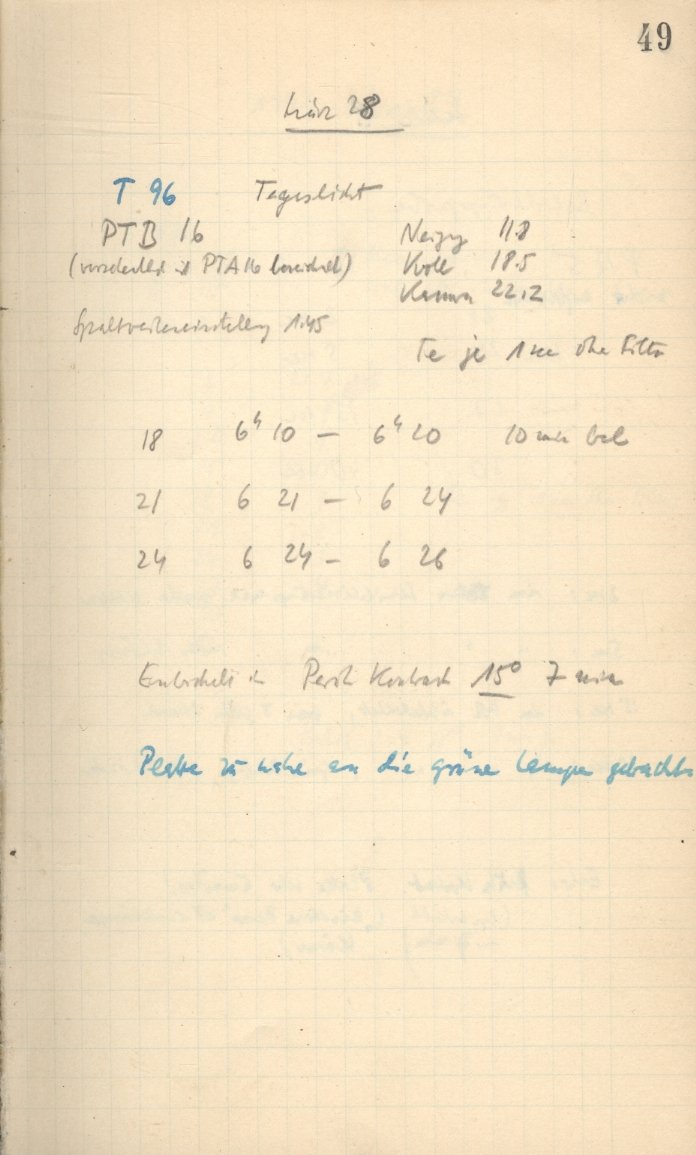 49
März 28
T 96 Tageslicht
PTB 16 Neigg 11.8
(versehentlich ist PTA 16 bezeichnet) Koll 18.5
Kamera 22.2
Spaltweiteneinstellung 1.45
Te je 1 sec ohne Filter
18 6ʰ 10 — 6ʰ 20 10 min bel
21 6 21 — 6 24
24 6 24 — 6 26
Entwickelt in 15° 7 min
Platte zu nahe an die grüne Lampe gebracht